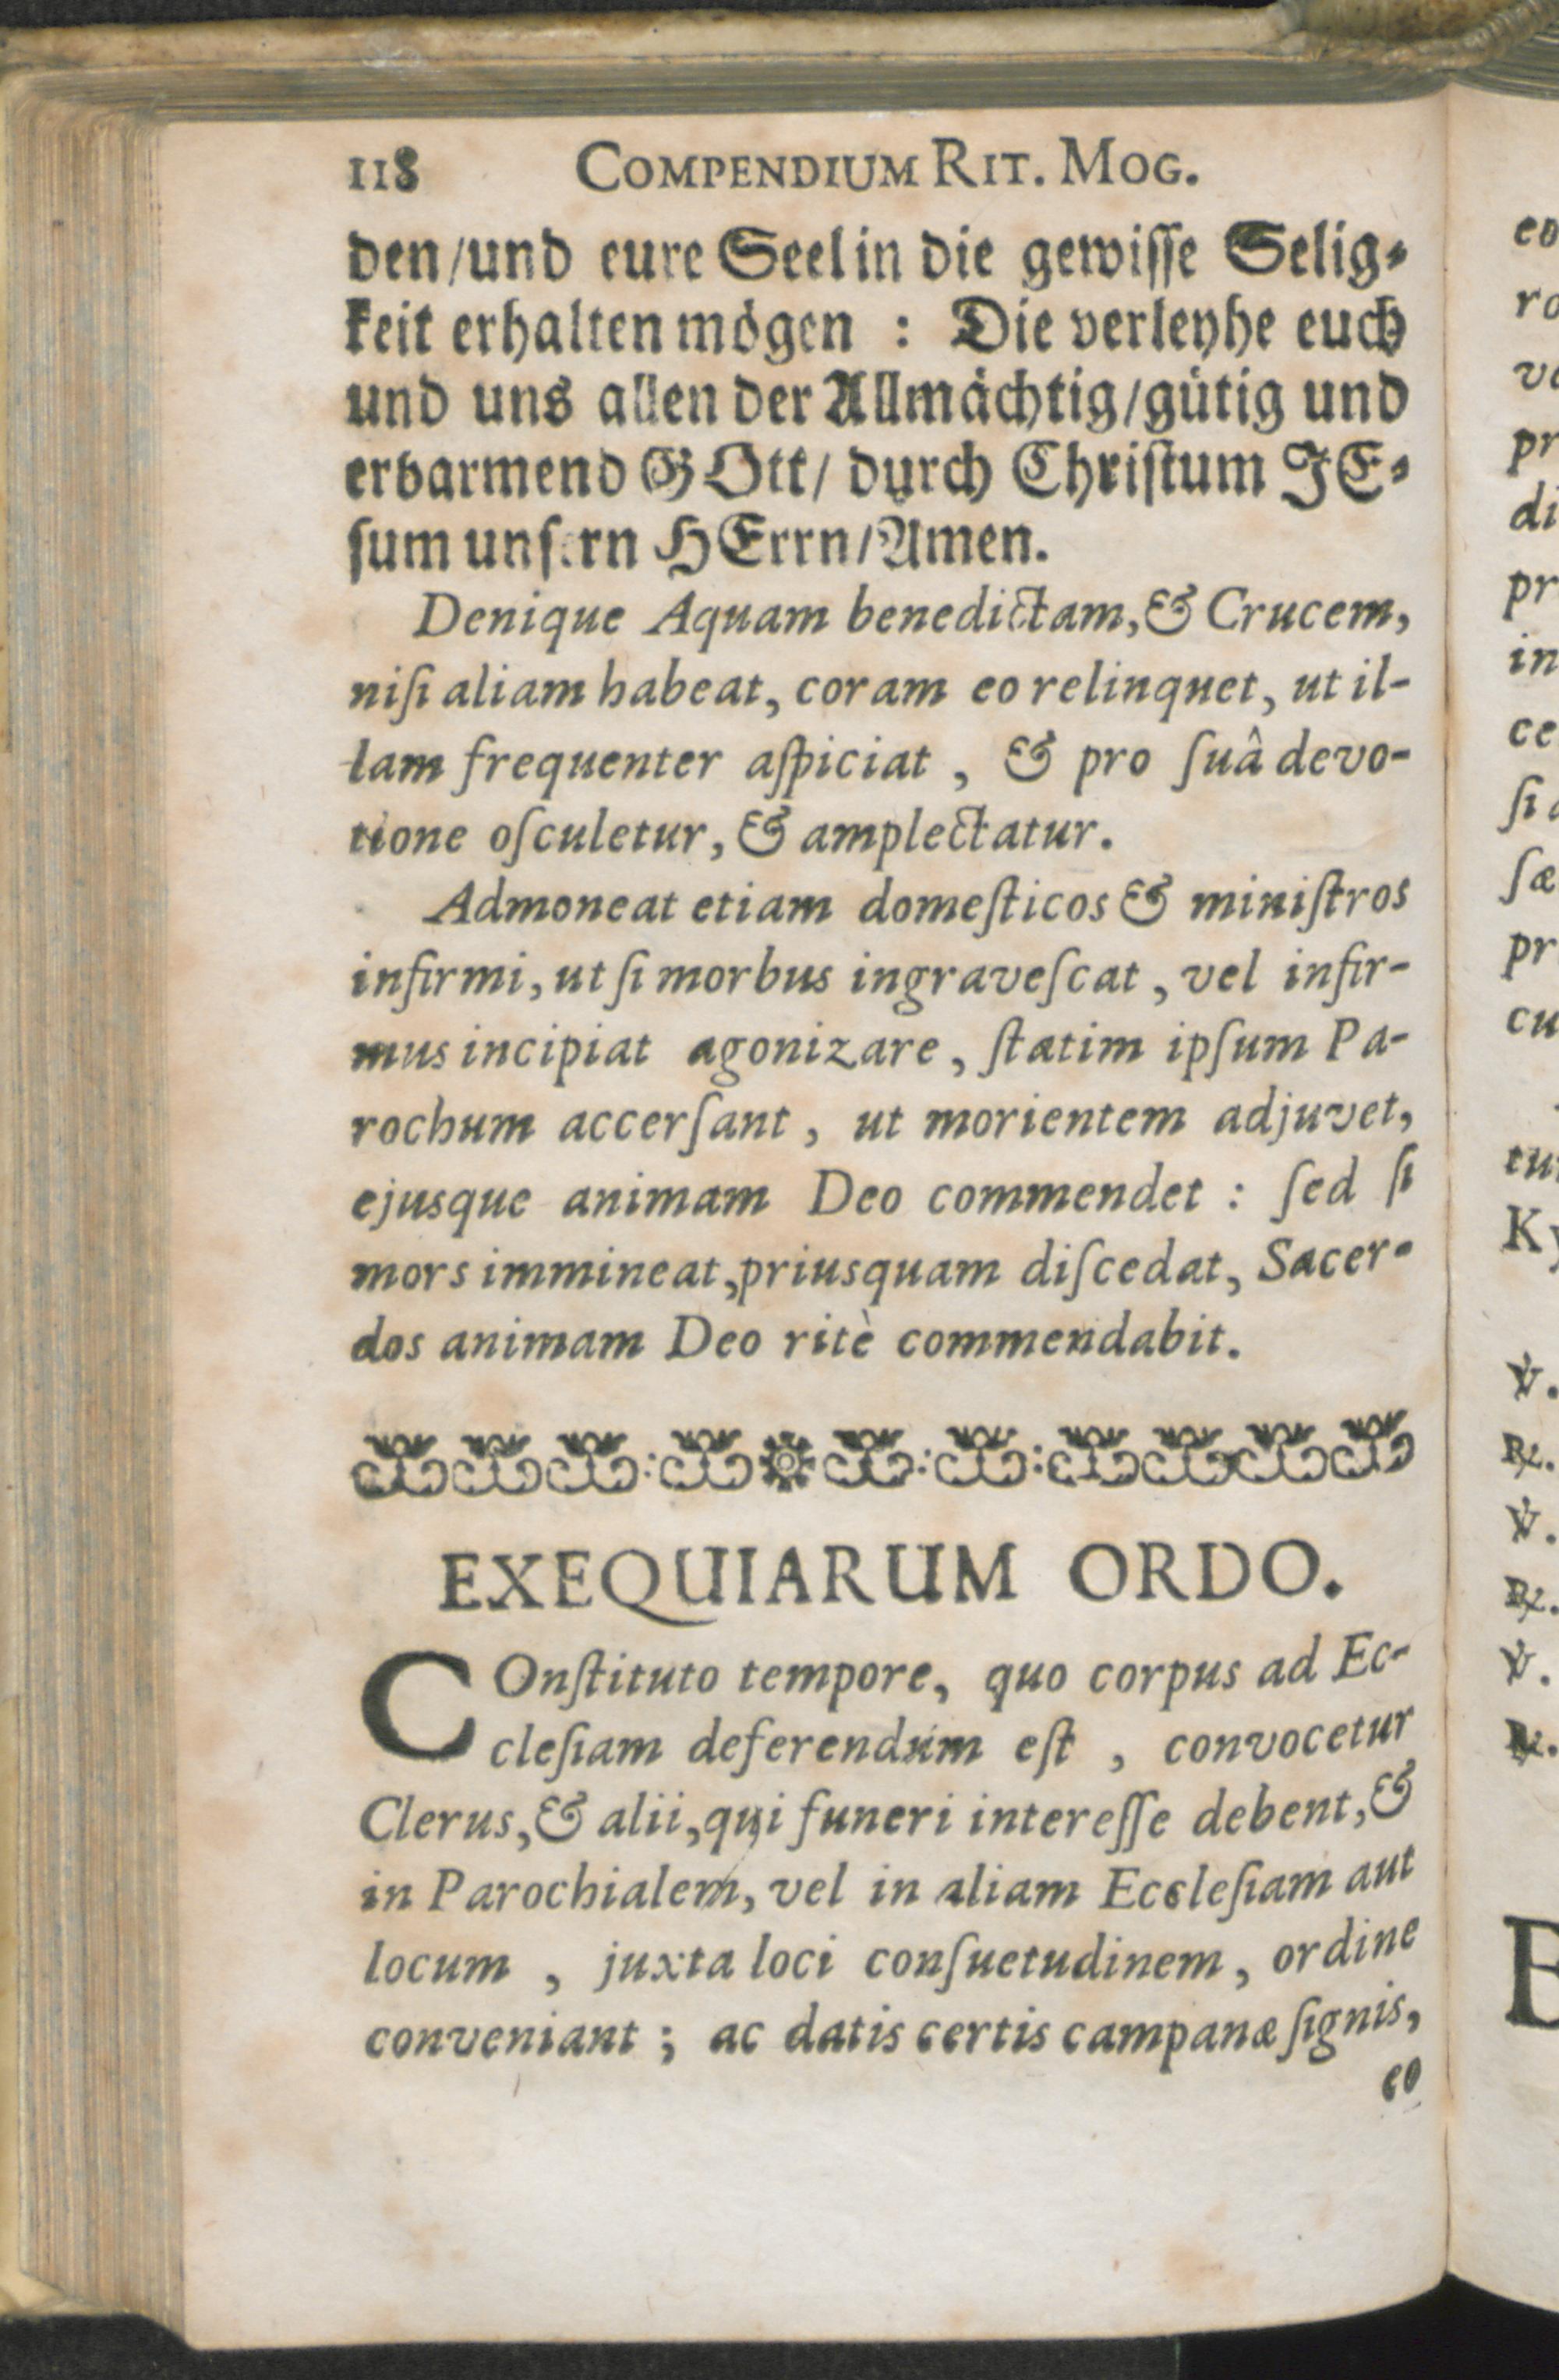 118 COMPENDIUM RIT. MOG.
den/und eure Seel in die gewiſſe Selig⸗
keit erhalten mögen : Die verleyhe euch
und uns allen der Allmächtig/gütig und
erbarmend GOtt/ durch Chriſtum JE⸗
ſum unſern HErrn/Amen.
Denique Aquam benedictam,& Crucem,
niſi aliam habeat, coram eo relinquet, ut il-
lam frequenter aſpiciat , & pro ſuâ devo-
tione oſculetur, & amplectatur.
Admoneat etiam domeſticos & miniſtros
infirmi, ut ſi morbus ingraveſcat , vel infir-
mus incipiat agonizare , ſtatim ipſum Pa-
rochum accerſant , ut morientem adjuvet,
ejusque animam Deo commendet : ſed ſi
mors immineat,priusquam diſcedat, Sacer-
dos animam Deo ritè commendabit.
EXEQUIARUM ORDO.
COnſtituto tempore, quo corpus ad Ec-
cleſiam deferendum eſt , convocetur
Clerus,& alii,qui funeri intereſſe debent,&
in Parochialem, vel in aliam Eccleſiam aut
locum , juxta loci conſuetudinem, ordine
conveniant ; ac datis certis campanæ ſignis,
eo
eo
pr
di
pr
in
ce
ſæ
pr
cu
℣.
℟.
℣.
℟.
℣.
℟.